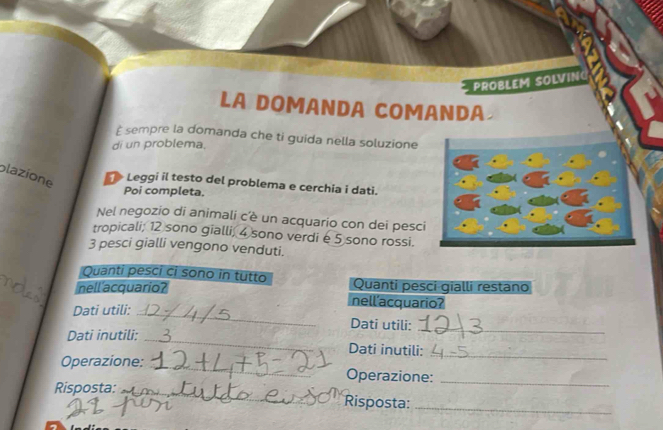 PROBLEM SOLVING
LA DOMANDA COMANDA
È sempre la domanda che ti guida nella soluzione
di un problema.
olazione
1 Leggi il testo del problema e cerchia i dati.
Poi completa.
Nel negozio di animali c'è un acquario con dei pesci
tropicali; 12 sono gialli, 4 sono verdi e 5 sono rossi.
3 pesci gialli vengono venduti.
Quanti pesci ci sono in tutto
nell'acquario?
Dati utili: 12 / 4 / 5
Dati inutili: 3
Operazione: 12 + 4 + 5 = 21
Risposta: in tutto
21
Quanti pesci gialli restano
nell'acquario?
Dati utili: 12 / 3
Dati inutili: 4 - 5
Operazione:
Risposta: